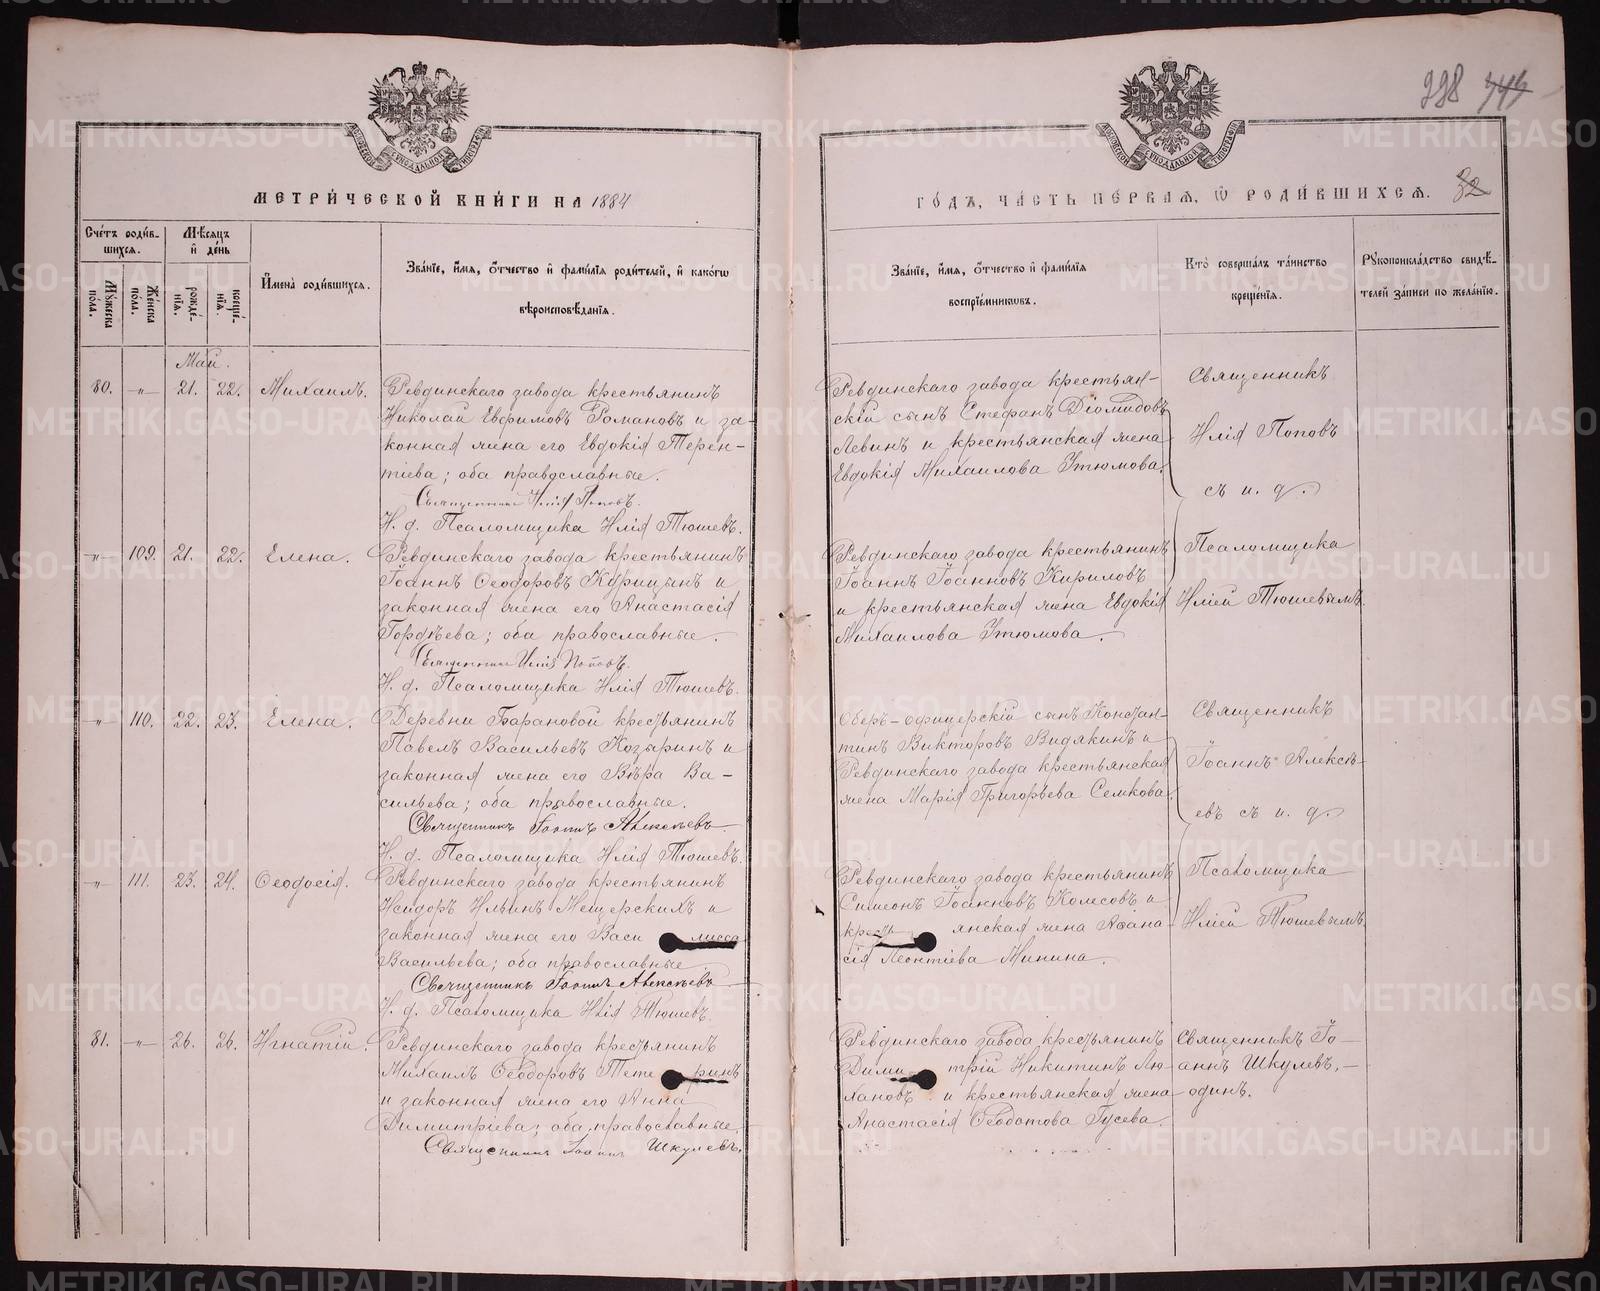 298
МЕТРИ́ЧЕСКОЙ КНИ́ГИ НА 1884
ГО́ДЪ, ЧА́СТЬ ПЕ́РВАЯ, Ѿ РОДИ́ВШИХСЯ. 32
Сче́тъ роди́в-
шихся.
Мѣ́сяцъ
и де́нь
Му́жеска пола.
Же́нска пола.
рожде́-
нія.
креще́-
нія.
Имена̀ роди́вшихся.
Зва́ніе, и́мя, о́тчество и фами́лія роди́телей, и како́гѡ
вѣроисповѣ́данія.
Зва́ніе, и́мя, о́тчество и фами́лія
воспріе́мниковъ.
Кто̀ соверша́лъ та́инство
креще́нія.
Рукоприкла́дство свидѣ́-
телей за́писи по жела́нію.
Май.
80. -"- 21. 22. Михаилъ.
Ревдинскаго завода крестьянинъ
Николай Евфимовъ Романовъ и за-
конная жена его Евдокія Терен-
тіева; оба православные.
Священникъ Илія Поповъ.
И. д. Псаломщика Илія Тюшевъ.
Ревдинскаго завода крестьян-
скій сынъ Стефанъ Діомидовъ
Левинъ и крестьянская жена
Евдокія Михаилова Утюмова.
Священникъ
Илія Поповъ
съ и. д.
Псаломщика
Иліей Тюшевымъ.
-"- 109. 21. 22. Елена.
Ревдинскаго завода крестьянинъ
Іоаннъ Ѳеодоровъ Курицынъ и
законная жена его Анастасія
Гордѣева; оба православные.
Священникъ Илія Поповъ.
И. д. Псаломщика Илія Тюшевъ.
Ревдинскаго завода крестьянинъ
Іоаннъ Іоанновъ Кириловъ
и крестьянская жена Евдокія
Михаилова Утюмова.
-"- 110. 22. 23. Елена.
Деревни Барановой крестьянинъ
Павелъ Васильевъ Козыринъ и
законная жена его Вѣра Ва-
сильева; оба православные.
Священникъ Іоаннъ Алексѣевъ
И. д. Псаломщика Илія Тюшевъ.
Оберъ-офицерскій сынъ Констан-
тинъ Викторовъ Видякинъ и
Ревдинскаго завода крестьянская
жена Марія Григорьева Семкова.
Священникъ
Іоаннъ Алексѣ-
евъ съ и. д.
Псаломщика
Иліей Тюшевымъ.
-"- 111. 23. 24. Ѳеодосія.
Ревдинскаго завода крестьянинъ
Исидоръ Ильинъ Мещерскихъ и
законная жена его Васи лисса
Васильева; оба православные.
Священникъ Іоаннъ Алексѣевъ
И. д. Псаломщика Илія Тюшевъ.
Ревдинскаго завода крестьянинъ
Симеонъ Іоанновъ Колесовъ и
кресть янская жена Аѳана-
сія Леонтіева Минина.
81. -"- 26. 26. Игнатій.
Ревдинскаго завода крестьянинъ
Михаилъ Ѳеодоровъ Тете ринъ
и законная жена его Анна
Димитріева; оба православные.
Священникъ Іоаннъ Шкулевъ.
Ревдинскаго завода крестьянинъ
Дими трій Никитинъ
и крестьянская жена
Анастасія Ѳеодотова Гусева.
Священникъ Іо-
аннъ Шкулевъ,-
одинъ.
METRIKI.GASO-URAL.RU